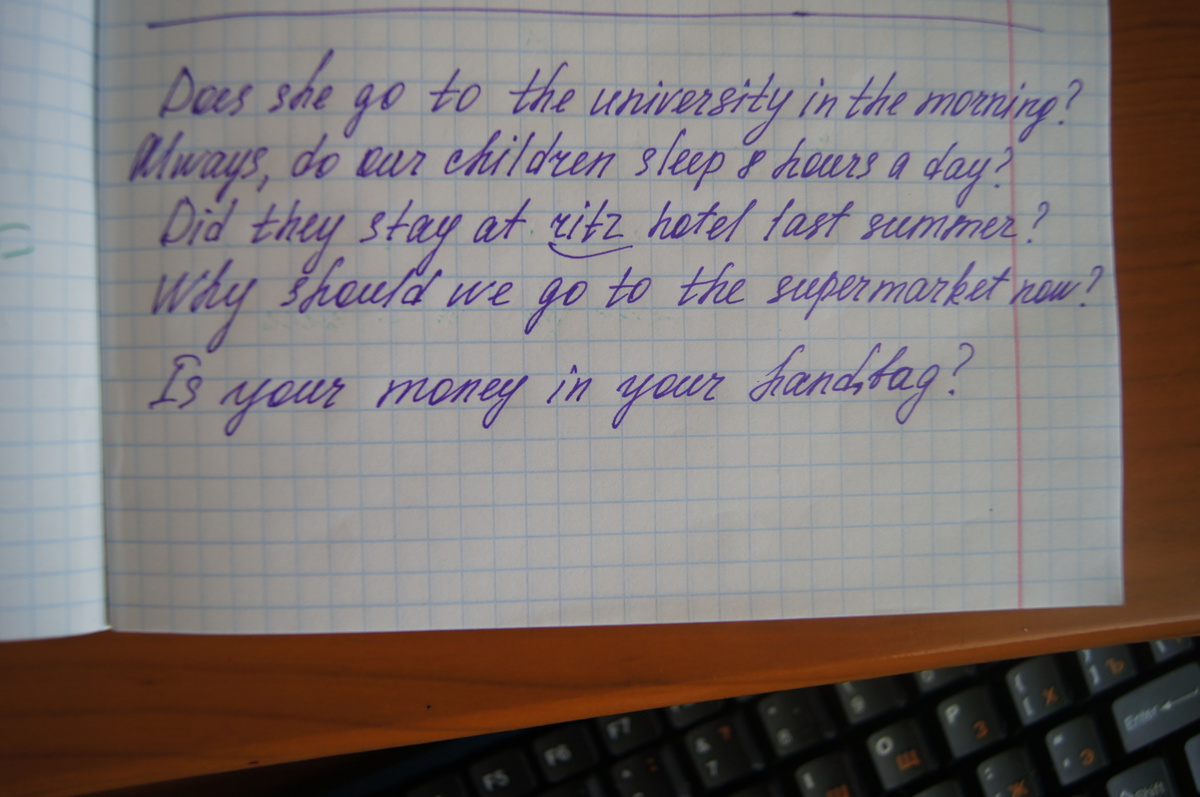 Does she go to the university in the morning?
Always, do our children sleep 8 hours a day?
Did they stay at ritz hotel last summer?
Why should we go to the supermarket now?
Is your money in your handbag?
F5
F6
F7
&
7
?
8
9
O
Щ
P
З
[
Х
Ъ
Ж
Э
Enter
Shift